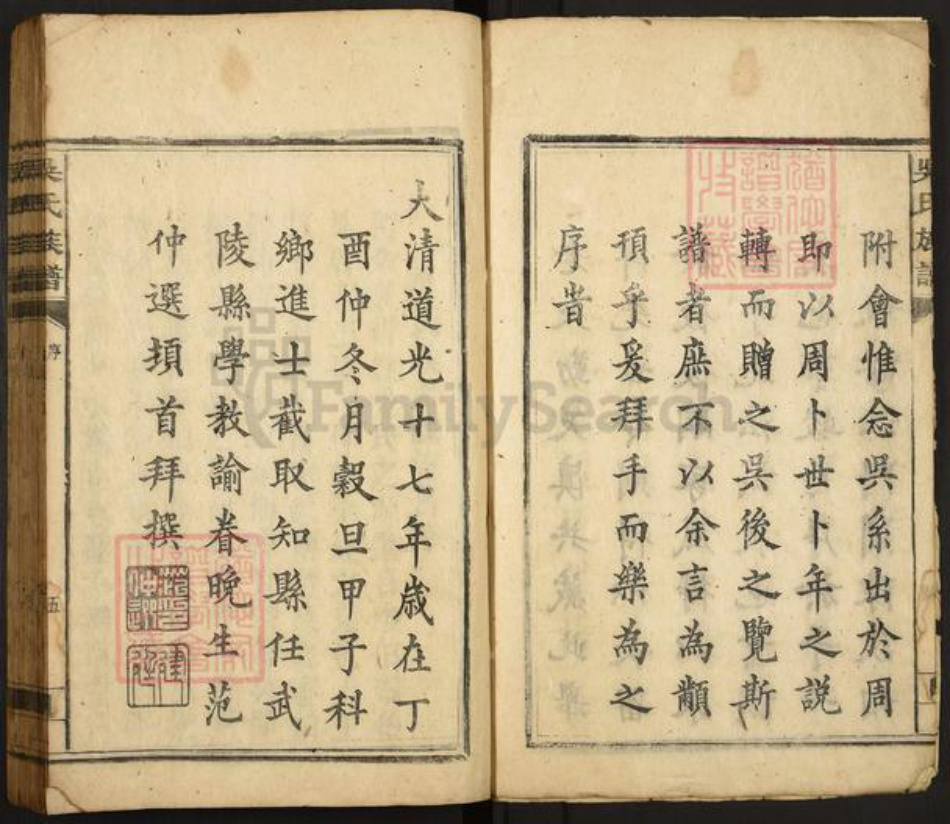 附會惟念吳系出於周
即以周卜世卜年之説
轉而贈之吳後之覽斯
譜者庶不以余言為顢
頇乎爰拜手而樂為之
序旹
大清道光十七年歲在丁
酉仲冬月穀旦甲子科
鄉進士截取知縣任武
陵縣學教諭眷晚生范
仲選頓首拜撰
吳氏族譜
序
五
FamilySearch